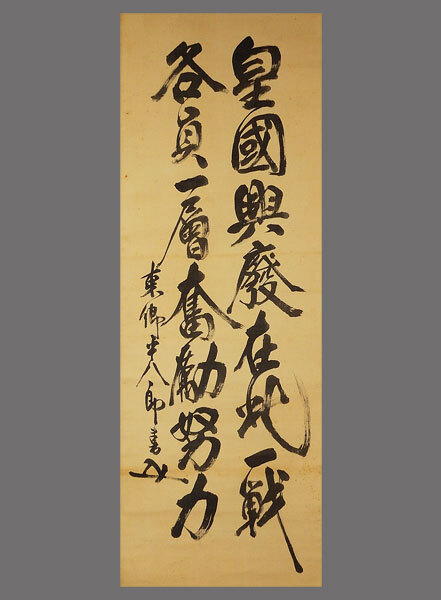 皇國興廢在此一戦
各員一層奮勵努力
東郷平八郎書